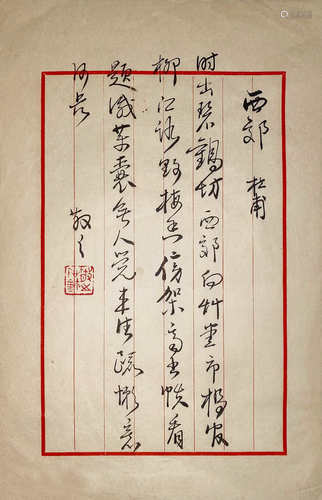 西郊 杜甫
时出碧鷄坊西郊向艸堂市橋官
柳江路野梅香傍架齐书帙看
题减药囊無人觉来往疏懒意
何长 敬之